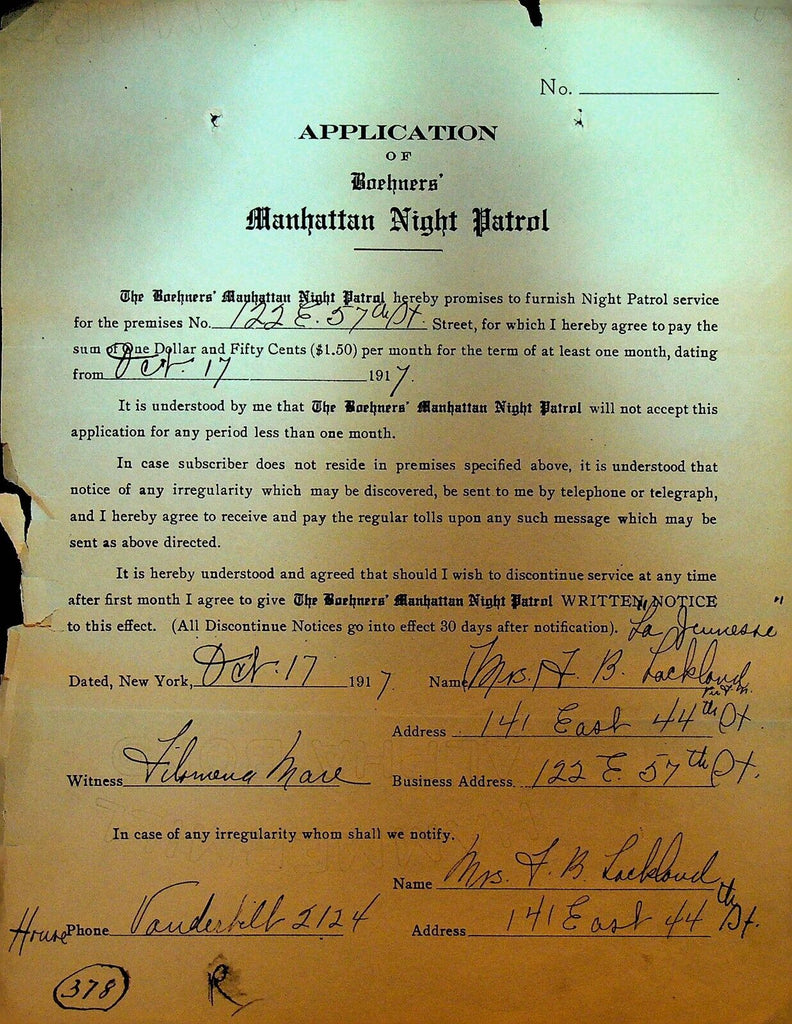 No.
APPLICATION
OF
Boehners'
Manhattan Night Patrol
The Boehners' Manhattan Night Patrol hereby promises to furnish Night Patrol service
for the premises No. 122 E. 57th St. Street, for which I hereby agree to pay the
sum of One Dollar and Fifty Cents ($1.50) per month for the term of at least one month, dating
from Oct. 17 1917.
It is understood by me that The Boehners' Manhattan Night Patrol will not accept this
application for any period less than one month.
In case subscriber does not reside in premises specified above, it is understood that
notice of any irregularity which may be discovered, be sent to me by telephone or telegraph,
and I hereby agree to receive and pay the regular tolls upon any such message which may be
sent as above directed.
It is hereby understood and agreed that should I wish to discontinue service at any time
after first month I agree to give The Boehners' Manhattan Night Patrol WRITTEN NOTICE
to this effect. (All Discontinue Notices go into effect 30 days after notification). "La Jeunesse"
Dated, New York, Oct. 17 1917 Name Mrs. F. B. Lockland
Address 141 East 44th St.
Witness Filomena Mare Business Address 122 E. 57th St.
In case of any irregularity whom shall we notify.
Name Mrs. F. B. Lockland
House Phone Vanderbilt 2124 Address 141 East 44th St.
378 R